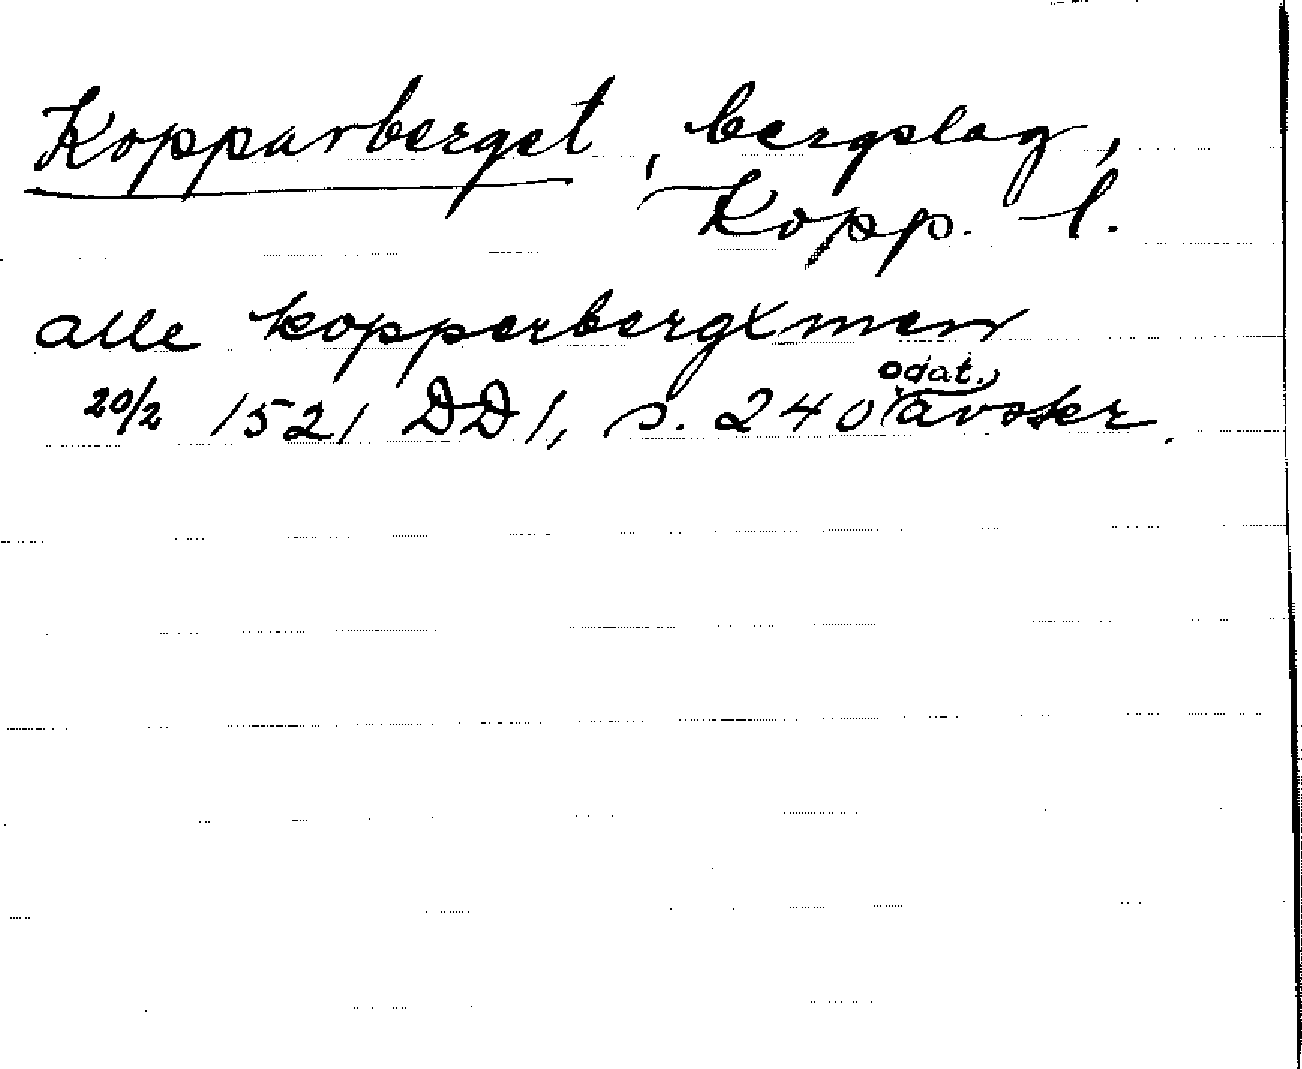 Kopparberget, bergslag,
Kopp. l.
alle kopperbergxmen
20/2 1521 DD1, s. 240 (odat. avskr.